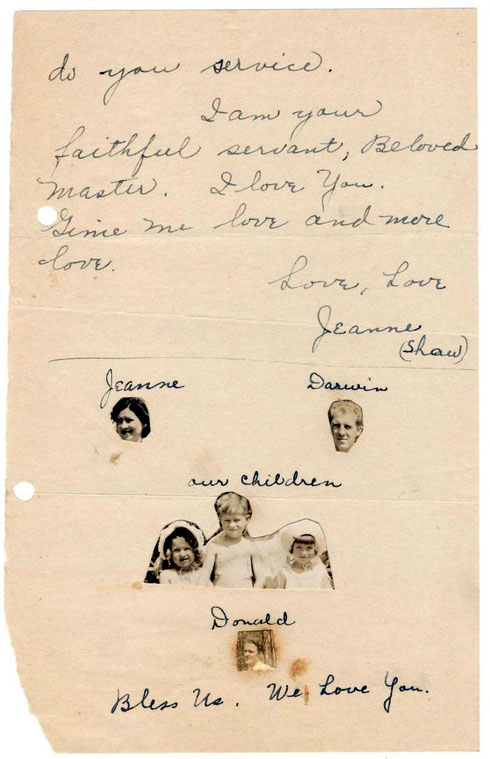 do you service.
I am your
faithful servant, Beloved
Master. I love You.
Gimie me love and more
love.
Love, Love
Jeanne
(Shaw)
Jeanne
Darwin
our children
Donald
Bless Us. We Love You.